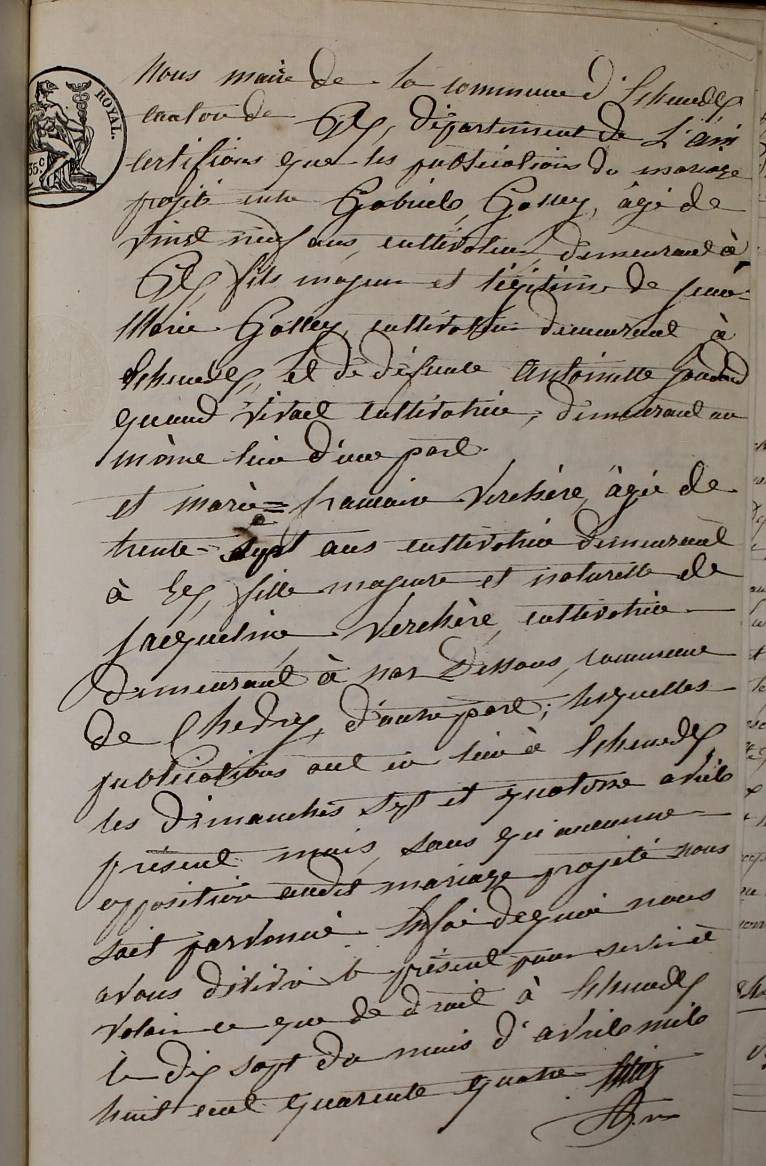 ROYAL.
35.c
Nous maire de la commune d'Echenevex
canton de Gex, département de L'ain
Certifions que les publications du mariage
projeté entre Gabriel Golley, âgé de
vingt neuf ans, cultivateur, demeurant à
Gex, fils majeur et légitime de jean=
Marie Golley, cultivateur demeurant à
Echenevex, et de défunte Antoinette
quand vivait cultivatrice, demeurant au
même lieu d'une part.
et marie= françoise Verchère, âgée de
trente= sept ans cultivatrice demeurant
à Gex, fille majeure et naturelle de
jacqueline Verchère, cultivatrice
demeurant à dessous, commune
de Chezery, d'autre part; lesquelles
publications ont eu lieu à Echenevex
les dimanches sept et quatorze avril
présent mois, sans qu'aucune
opposition audit mariage projeté nous
soit parvenue. En foi de quoi nous
avons délivré le présent pour servir et
valoir ce que de droit à Echenevex
le dix sept du mois d'avril mil
huit cent quarante quatre